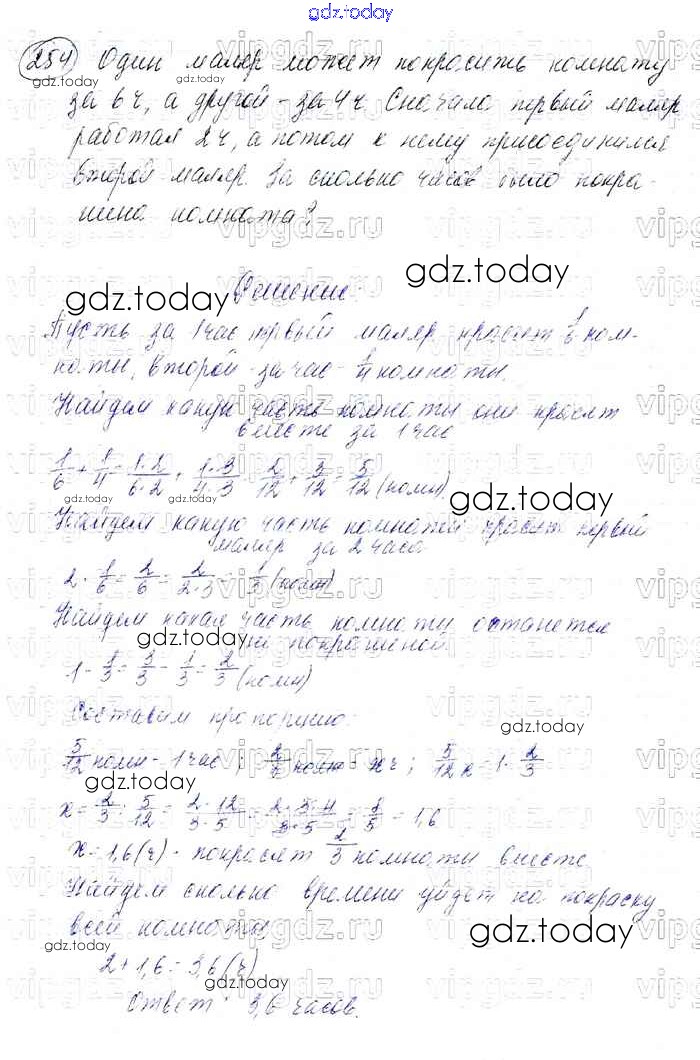 gdz.today
254 Один маляр может покрасить комнату
за 6 ч, а другой – за 4 ч. Сначала первый маляр
работал 2 ч, а потом к нему присоединился
второй маляр. За сколько часов было покра-
шена комната?
Решение.
Пусть за 1 час первый маляр красит 1/6 ком-
наты, второй – за час – 1/4 комнаты.
Найдем какую часть комнаты они красят
вместе за 1 час
1/6 + 1/4 = 1·2/6·2 + 1·3/4·3 = 2/12 + 3/12 = 5/12 (комн)
Найдем какую часть комнаты красит первый
маляр за 2 часа
2 · 1/6 = 2/6 = 2/2·3 = 1/3 (комн)
Найдем какая часть комнаты останется
не покрашеной.
1 - 1/3 = 3/3 - 1/3 = 2/3 (комн)
Составим пропорцию:
5/12 комн – 1 час ; 2/3 комн – x ч ; 5/12 x = 1 · 2/3
x = 2/3 : 5/12 = 2·12/3·5 = 2·3·4/3·5 = 8/5 = 1,6
x = 1,6 (ч) - покрасят 2/3 комнаты вместе
Найдем сколько времени уйдет на покраску
всей комнаты
2 + 1,6 = 3,6 (ч)
Ответ: 3,6 часов.